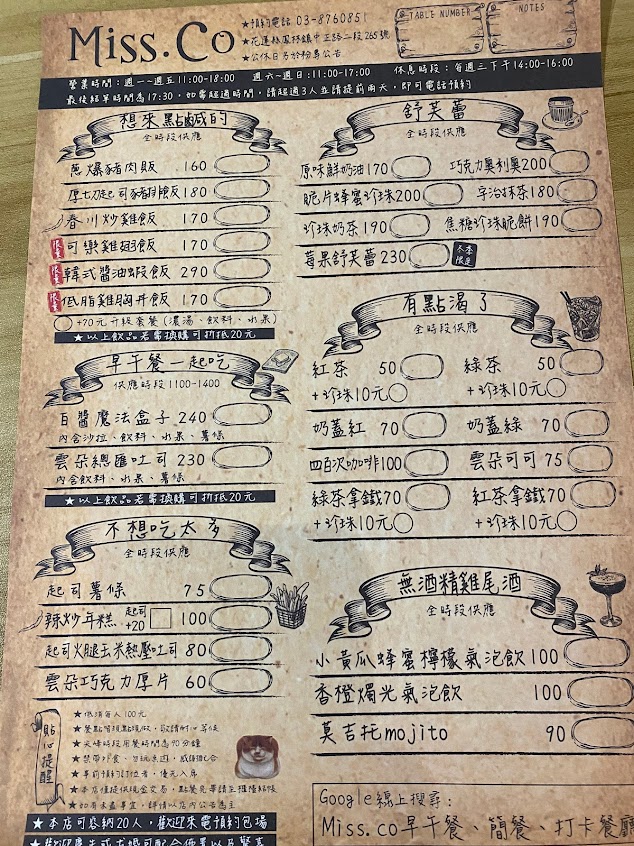 Miss.Co
★預約電話 03-8760851
★花蓮縣鳳林鎮中正路二段265號
★公休日另於粉專公告
TABLE NUMBER
NOTES
營業時間：週一~週五11:00-18:00 週六~週日:11:00-17:00 休息時段：每週三下午14:00-16:00
最後結單時間為17:30，如需超過時間，請超過3人並請提前兩天，即可電話預約
想來點鹹的
全時段供應
蔥爆豬肉飯 160
厚切起司豬排飯180
春川炒雞飯 170
限量 可樂雞翅飯 170
限量 韓式醬油蝦飯 290
限量 低脂雞胸丼飯 170
+70元升級套餐(濃湯、飲料、水果)
★以上飲品若需換購可折抵20元
早午餐一起吃
供應時段1100-1400
百醬魔法盒子 240
內含沙拉、飲料、水果、薯條
雲朵總匯吐司 230
內含飲料、水果、薯條
★以上飲品若需換購可折抵20元
不想吃太多
全時段供應
起司薯條 75
辣炒年糕 起司+20 100
起司火腿玉米熱壓吐司 80
雲朵巧克力厚片 60
貼心提醒
★低消每人100元
★餐點皆現點現做，敬請耐心等候
★尖峰時段用餐時間為90分鐘
★禁帶外食、勿玩桌遊，感謝配合
★事前預約訂位者，優先入席
★本店僅提供現金交易，點餐完畢請至櫃檯結帳
★如有未盡事宜，詳情以店內公告為主
★本店可容納20人，歡迎來電預約包場
舒芙蕾
全時段供應
原味鮮奶油170 巧克力奧利奧200
脆片蜂蜜珍珠200 宇治抹茶180
珍珠奶茶190 焦糖珍珠脆餅190
莓果舒芙蕾230 冬季限定
有點渴了
全時段供應
紅茶 50 綠茶 50
+珍珠10元 +珍珠10元
奶蓋紅 70 奶蓋綠 70
四百次咖啡100 雲朵可可 75
綠茶拿鐵70 紅茶拿鐵70
+珍珠10元 +珍珠10元
無酒精雞尾酒
全時段供應
小黃瓜蜂蜜檸檬氣泡飲100
香橙燭光氣泡飲 100
莫吉托mojito 90
Google線上搜尋：
Miss.co早午餐、簡餐、打卡餐廳